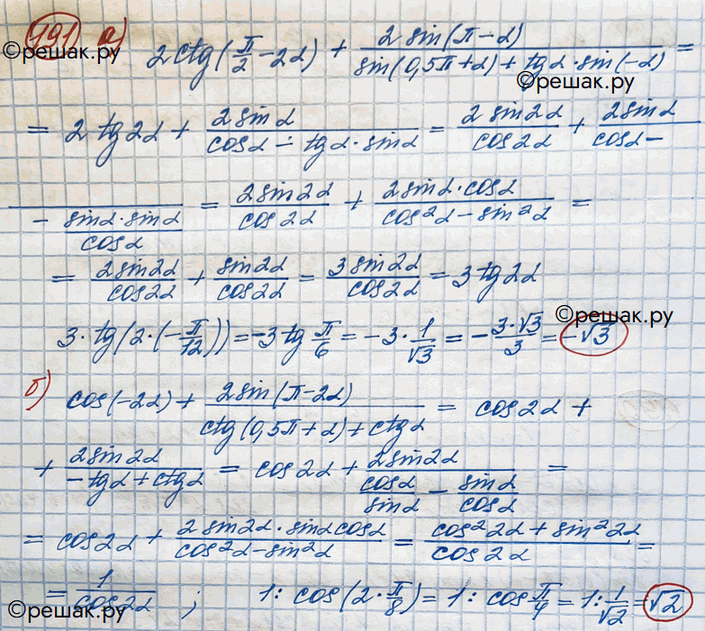 191 а) 2ctg(π/2 − 2α) + 2sin(π−α)/(sin(0,5π+α) + tgα·sin(−α)) =
= 2tg2α + 2sinα/(cosα − tgα·sinα) = 2sin2α/cos2α + 2sinα/(cosα −
− sinα·sinα/cosα) = 2sin2α/cos2α + 2sinα·cosα/(cos²α − sin²α) =
= 2sin2α/cos2α + sin2α/cos2α = 3sin2α/cos2α = 3tg2α
3·tg(2·(−π/12)) = −3tg π/6 = −3·1/√3 = −3·√3/3 = −√3
б) cos(−2α) + 2sin(π−2α)/(ctg(0,5π+α) + ctgα) = cos2α +
+ 2sin2α/(−tgα + ctgα) = cos2α + 2sin2α/(cosα/sinα − sinα/cosα) =
= cos2α + 2sin2α·sinαcosα/(cos²α − sin²α) = (cos²2α + sin²2α)/cos2α =
= 1/cos2α ; 1: cos(2·π/8) = 1: cos π/4 = 1: 1/√2 = √2
©решак.ру
©решак.ру
©решак.ру
©решак.ру